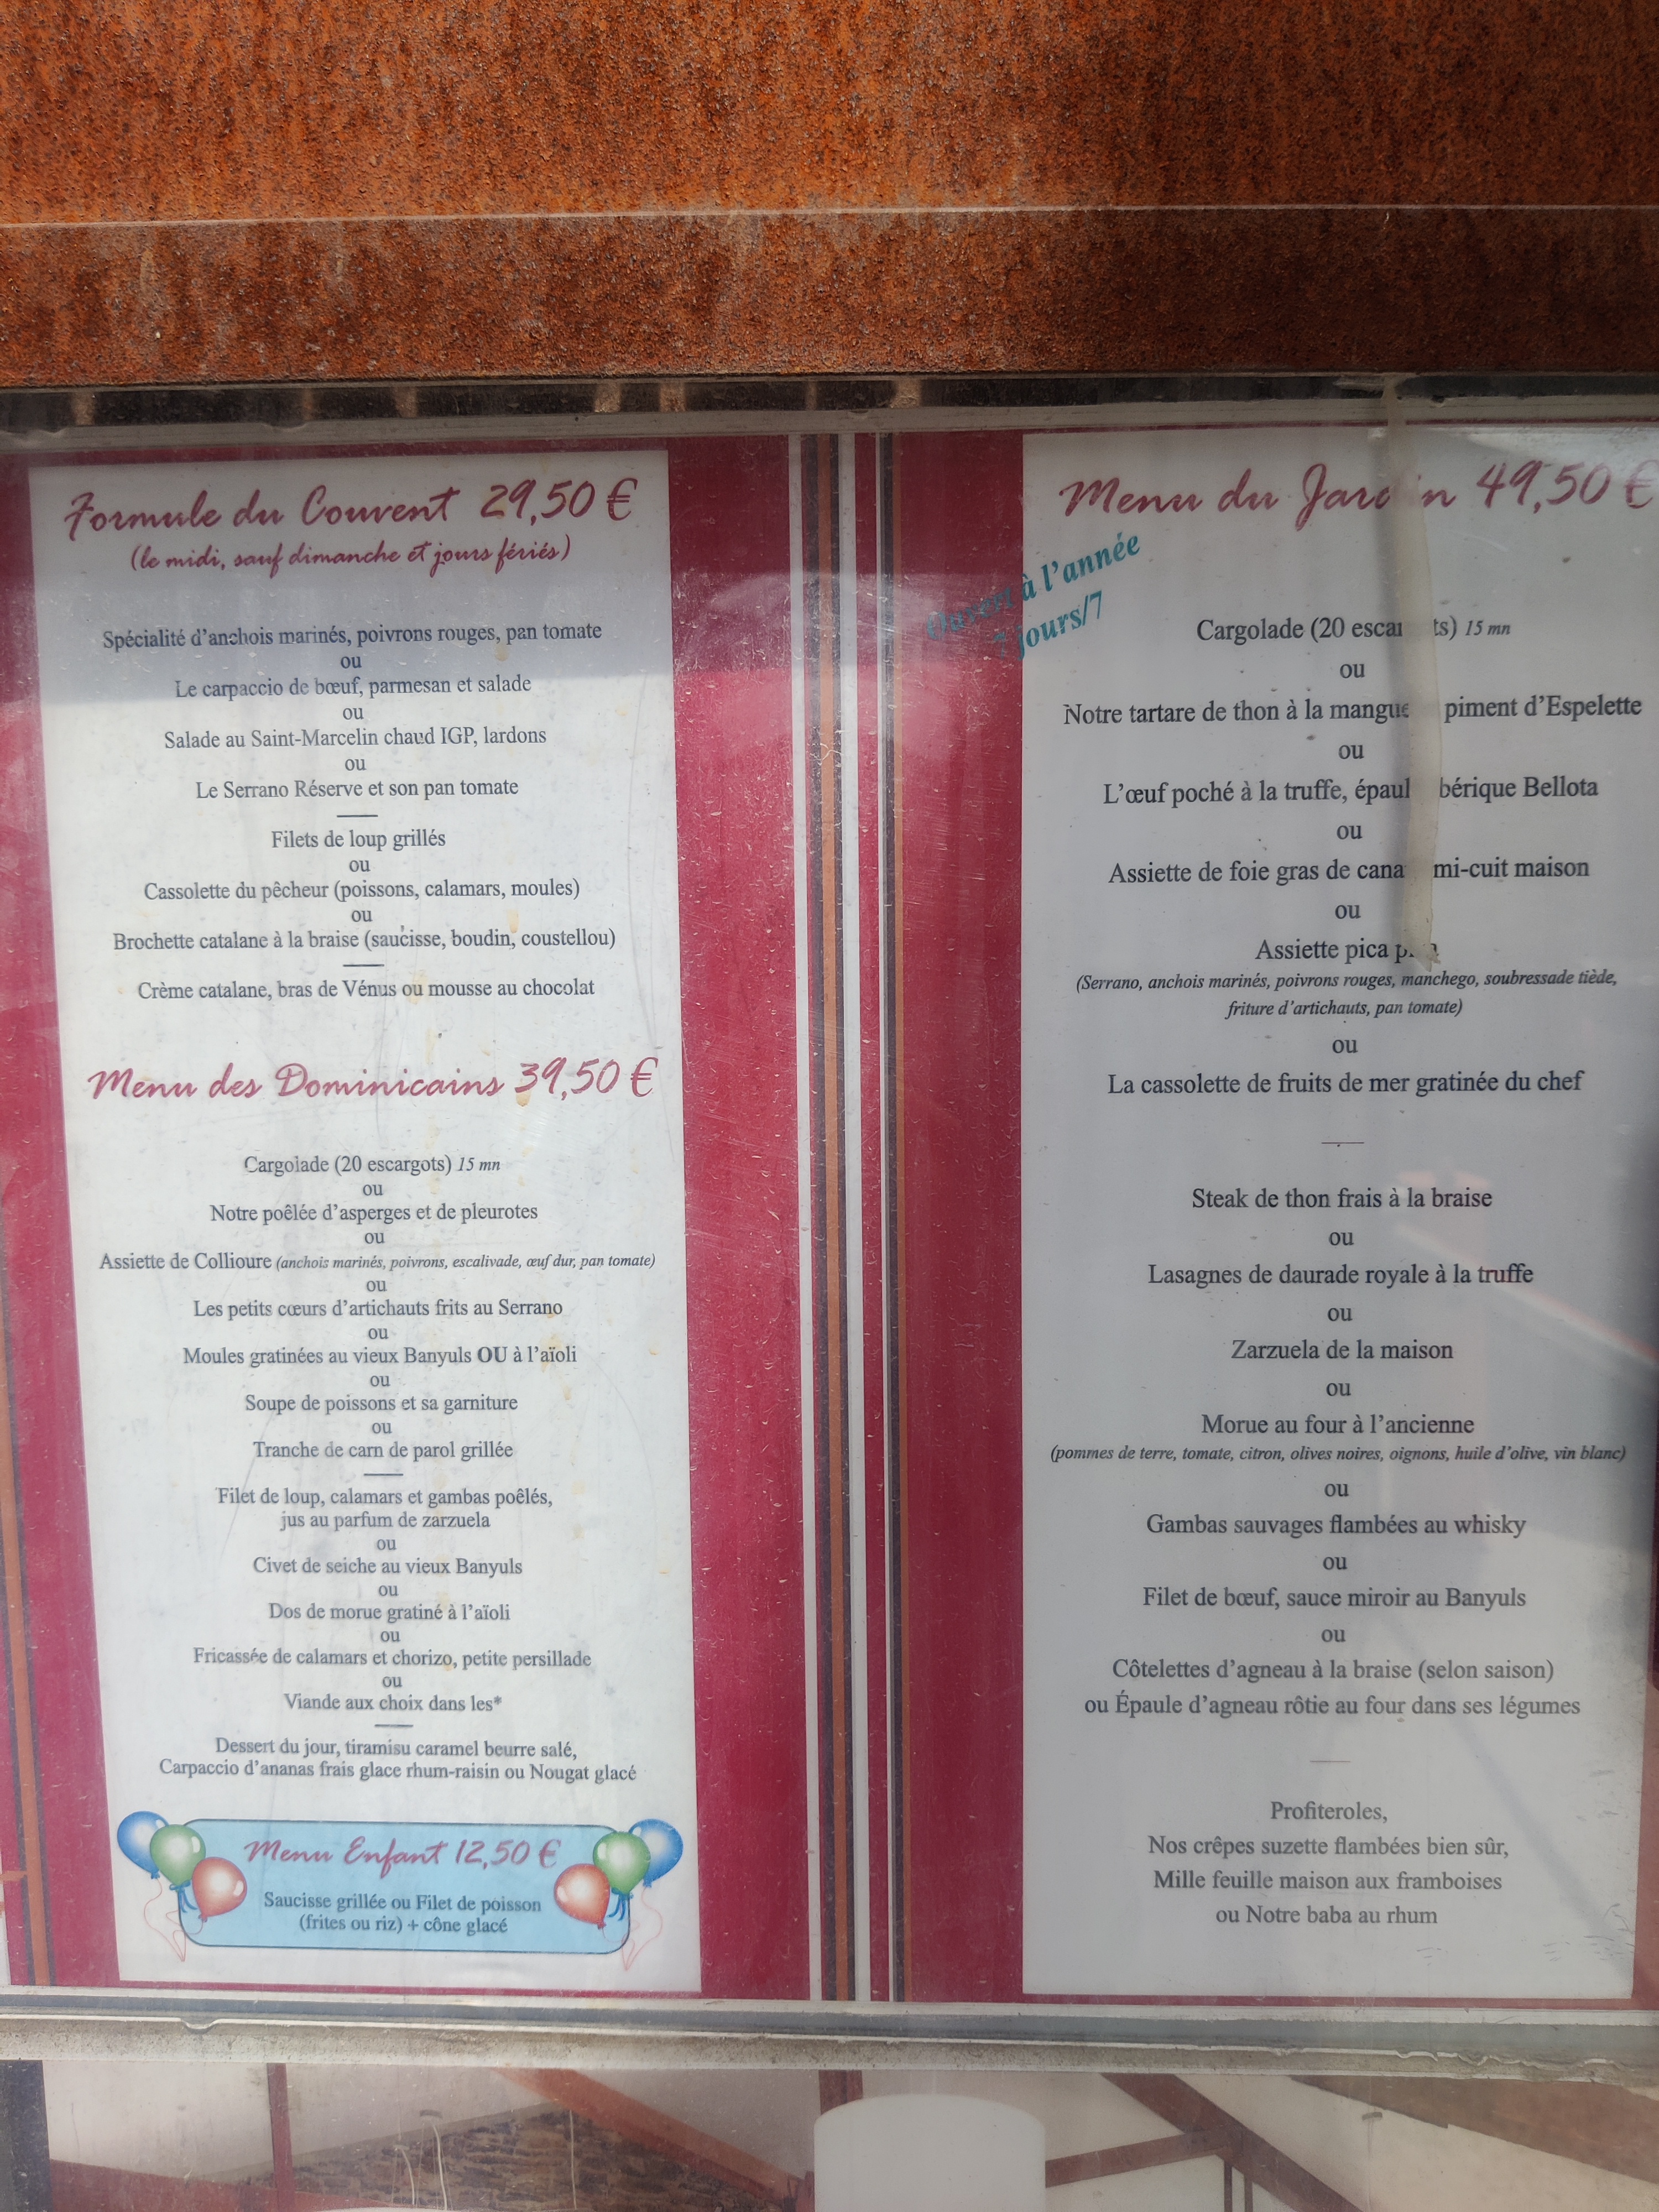 Formule du Couvent 29,50 €
(le midi, sauf dimanche et jours fériés)
Spécialité d'anchois marinés, poivrons rouges, pan tomate
ou
Le carpaccio de bœuf, parmesan et salade
ou
Salade au Saint-Marcelin chaud IGP, lardons
ou
Le Serrano Réserve et son pan tomate
Filets de loup grillés
ou
Cassolette du pêcheur (poissons, calamars, moules)
ou
Brochette catalane à la braise (saucisse, boudin, coustellou)
Crème catalane, bras de Vénus ou mousse au chocolat
Menu des Dominicains 39,50 €
Cargolade (20 escargots) 15 mn
ou
Notre poêlée d'asperges et de pleurotes
ou
Assiette de Collioure (anchois marinés, poivrons, escalivade, œuf dur, pan tomate)
ou
Les petits cœurs d'artichauts frits au Serrano
ou
Moules gratinées au vieux Banyuls OU à l'aïoli
ou
Soupe de poissons et sa garniture
ou
Tranche de carn de parol grillée
Filet de loup, calamars et gambas poêlés,
jus au parfum de zarzuela
ou
Civet de seiche au vieux Banyuls
ou
Dos de morue gratiné à l'aïoli
ou
Fricassée de calamars et chorizo, petite persillade
ou
Viande aux choix dans les*
Dessert du jour, tiramisu caramel beurre salé,
Carpaccio d'ananas frais glace rhum-raisin ou Nougat glacé
Menu Enfant 12,50 €
Saucisse grillée ou Filet de poisson
(frites ou riz) + cône glacé
Ouvert à l'année
7 jours/7
Menu du Jardin 49,50 €
Cargolade (20 escargots) 15 mn
ou
Notre tartare de thon à la mangue piment d'Espelette
ou
L'œuf poché à la truffe, épaule ibérique Bellota
ou
Assiette de foie gras de canard mi-cuit maison
ou
Assiette pica pica
(Serrano, anchois marinés, poivrons rouges, manchego, soubressade tiède,
friture d'artichauts, pan tomate)
ou
La cassolette de fruits de mer gratinée du chef
Steak de thon frais à la braise
ou
Lasagnes de daurade royale à la truffe
ou
Zarzuela de la maison
ou
Morue au four à l'ancienne
(pommes de terre, tomate, citron, olives noires, oignons, huile d'olive, vin blanc)
ou
Gambas sauvages flambées au whisky
ou
Filet de bœuf, sauce miroir au Banyuls
ou
Côtelettes d'agneau à la braise (selon saison)
ou Épaule d'agneau rôtie au four dans ses légumes
Profiteroles,
Nos crêpes suzette flambées bien sûr,
Mille feuille maison aux framboises
ou Notre baba au rhum